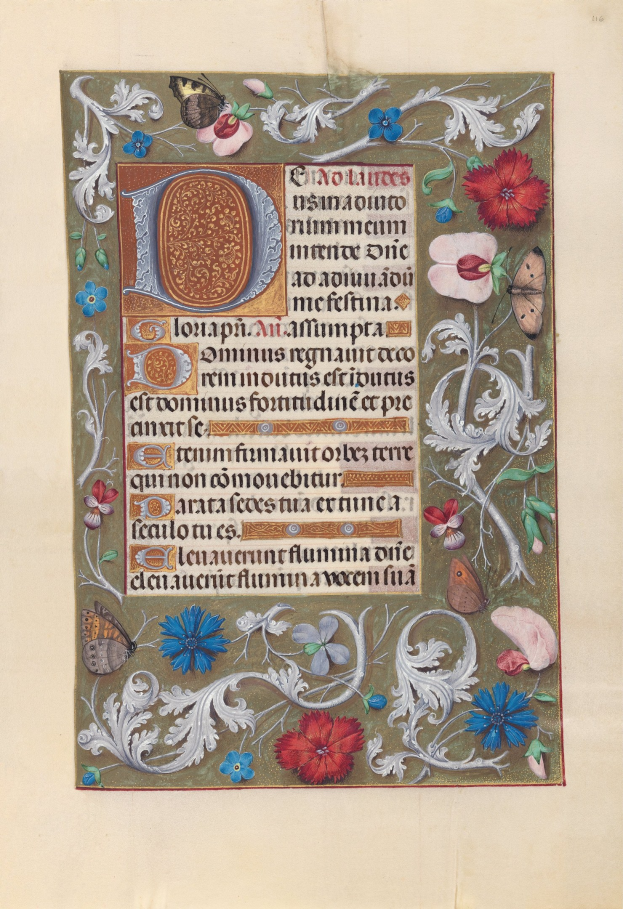 DE Ad laudes
us in adiuto
rium meum
intende Dñe
ad adiuuãdũ
me festina
Gloria pri. Añ. assumpta
Dominus regnauit deco
rem indutus est idutus
est dominus fortitudinẽ et pre
cinxit se.
Etenim firmauit orbez terre
qui non cõmouebitur
Parata sedes tua ex tunc a
seculo tu es.
Eleuauerunt flumina dñe
eleuauerũt flumina vocem suã